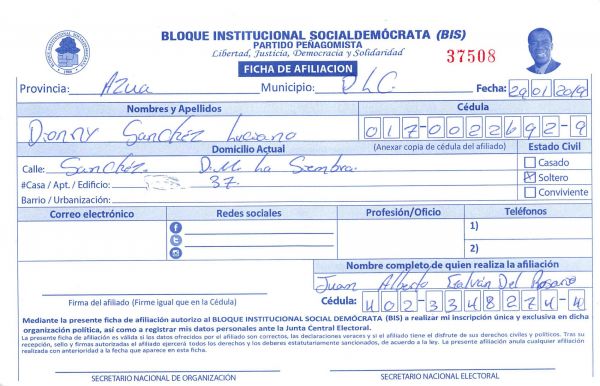 BLOQUE INSTITUCIONAL SOCIALDEMÓCRATA (BIS)
PARTIDO PEÑAGOMISTA
Libertad, Justicia, Democracia y Solidaridad
37508
FICHA DE AFILIACION
Provincia: Azua Municipio: P.L.C. Fecha: 29/01/2019
Nombres y Apellidos Cédula
Dionny Sanchez Luciano 017-0022692-9
Domicilio Actual (Anexar copia de cédula del afiliado) Estado Civil
Calle: Sanchez. D.M. La Siembra. Casado
#Casa / Apt. / Edificio: 37. Soltero
Barrio / Urbanización: Conviviente
Correo electrónico Redes sociales Profesión/Oficio Teléfonos
1)
2)
Nombre completo de quien realiza la afiliación
Juan Alberto Galván Del Rosario
Firma del afiliado (Firme igual que en la Cédula) Cédula: 402-3348274-4
Mediante la presente ficha de afiliación autorizo al BLOQUE INSTITUCIONAL SOCIAL DEMÓCRATA (BIS) a realizar mi inscripción única y exclusiva en dicha
organización política, así como a registrar mis datos personales ante la Junta Central Electoral.
La presente ficha de afiliación es válida si los datos ofrecidos por el afiliado son correctos, las declaraciones veraces y si el afiliado tiene el disfrute de sus derechos civiles y políticos. Tras su
recepción, sello y firmas autorizadas el afiliado ejercerá todos los derechos y los deberes estatutariamente sancionados, de acuerdo a la ley. La presente afiliación anula cualquier afiliación
realizada con anterioridad a la fecha que aparece en esta ficha.
SECRETARIO NACIONAL DE ORGANIZACIÓN SECRETARIO NACIONAL ELECTORAL